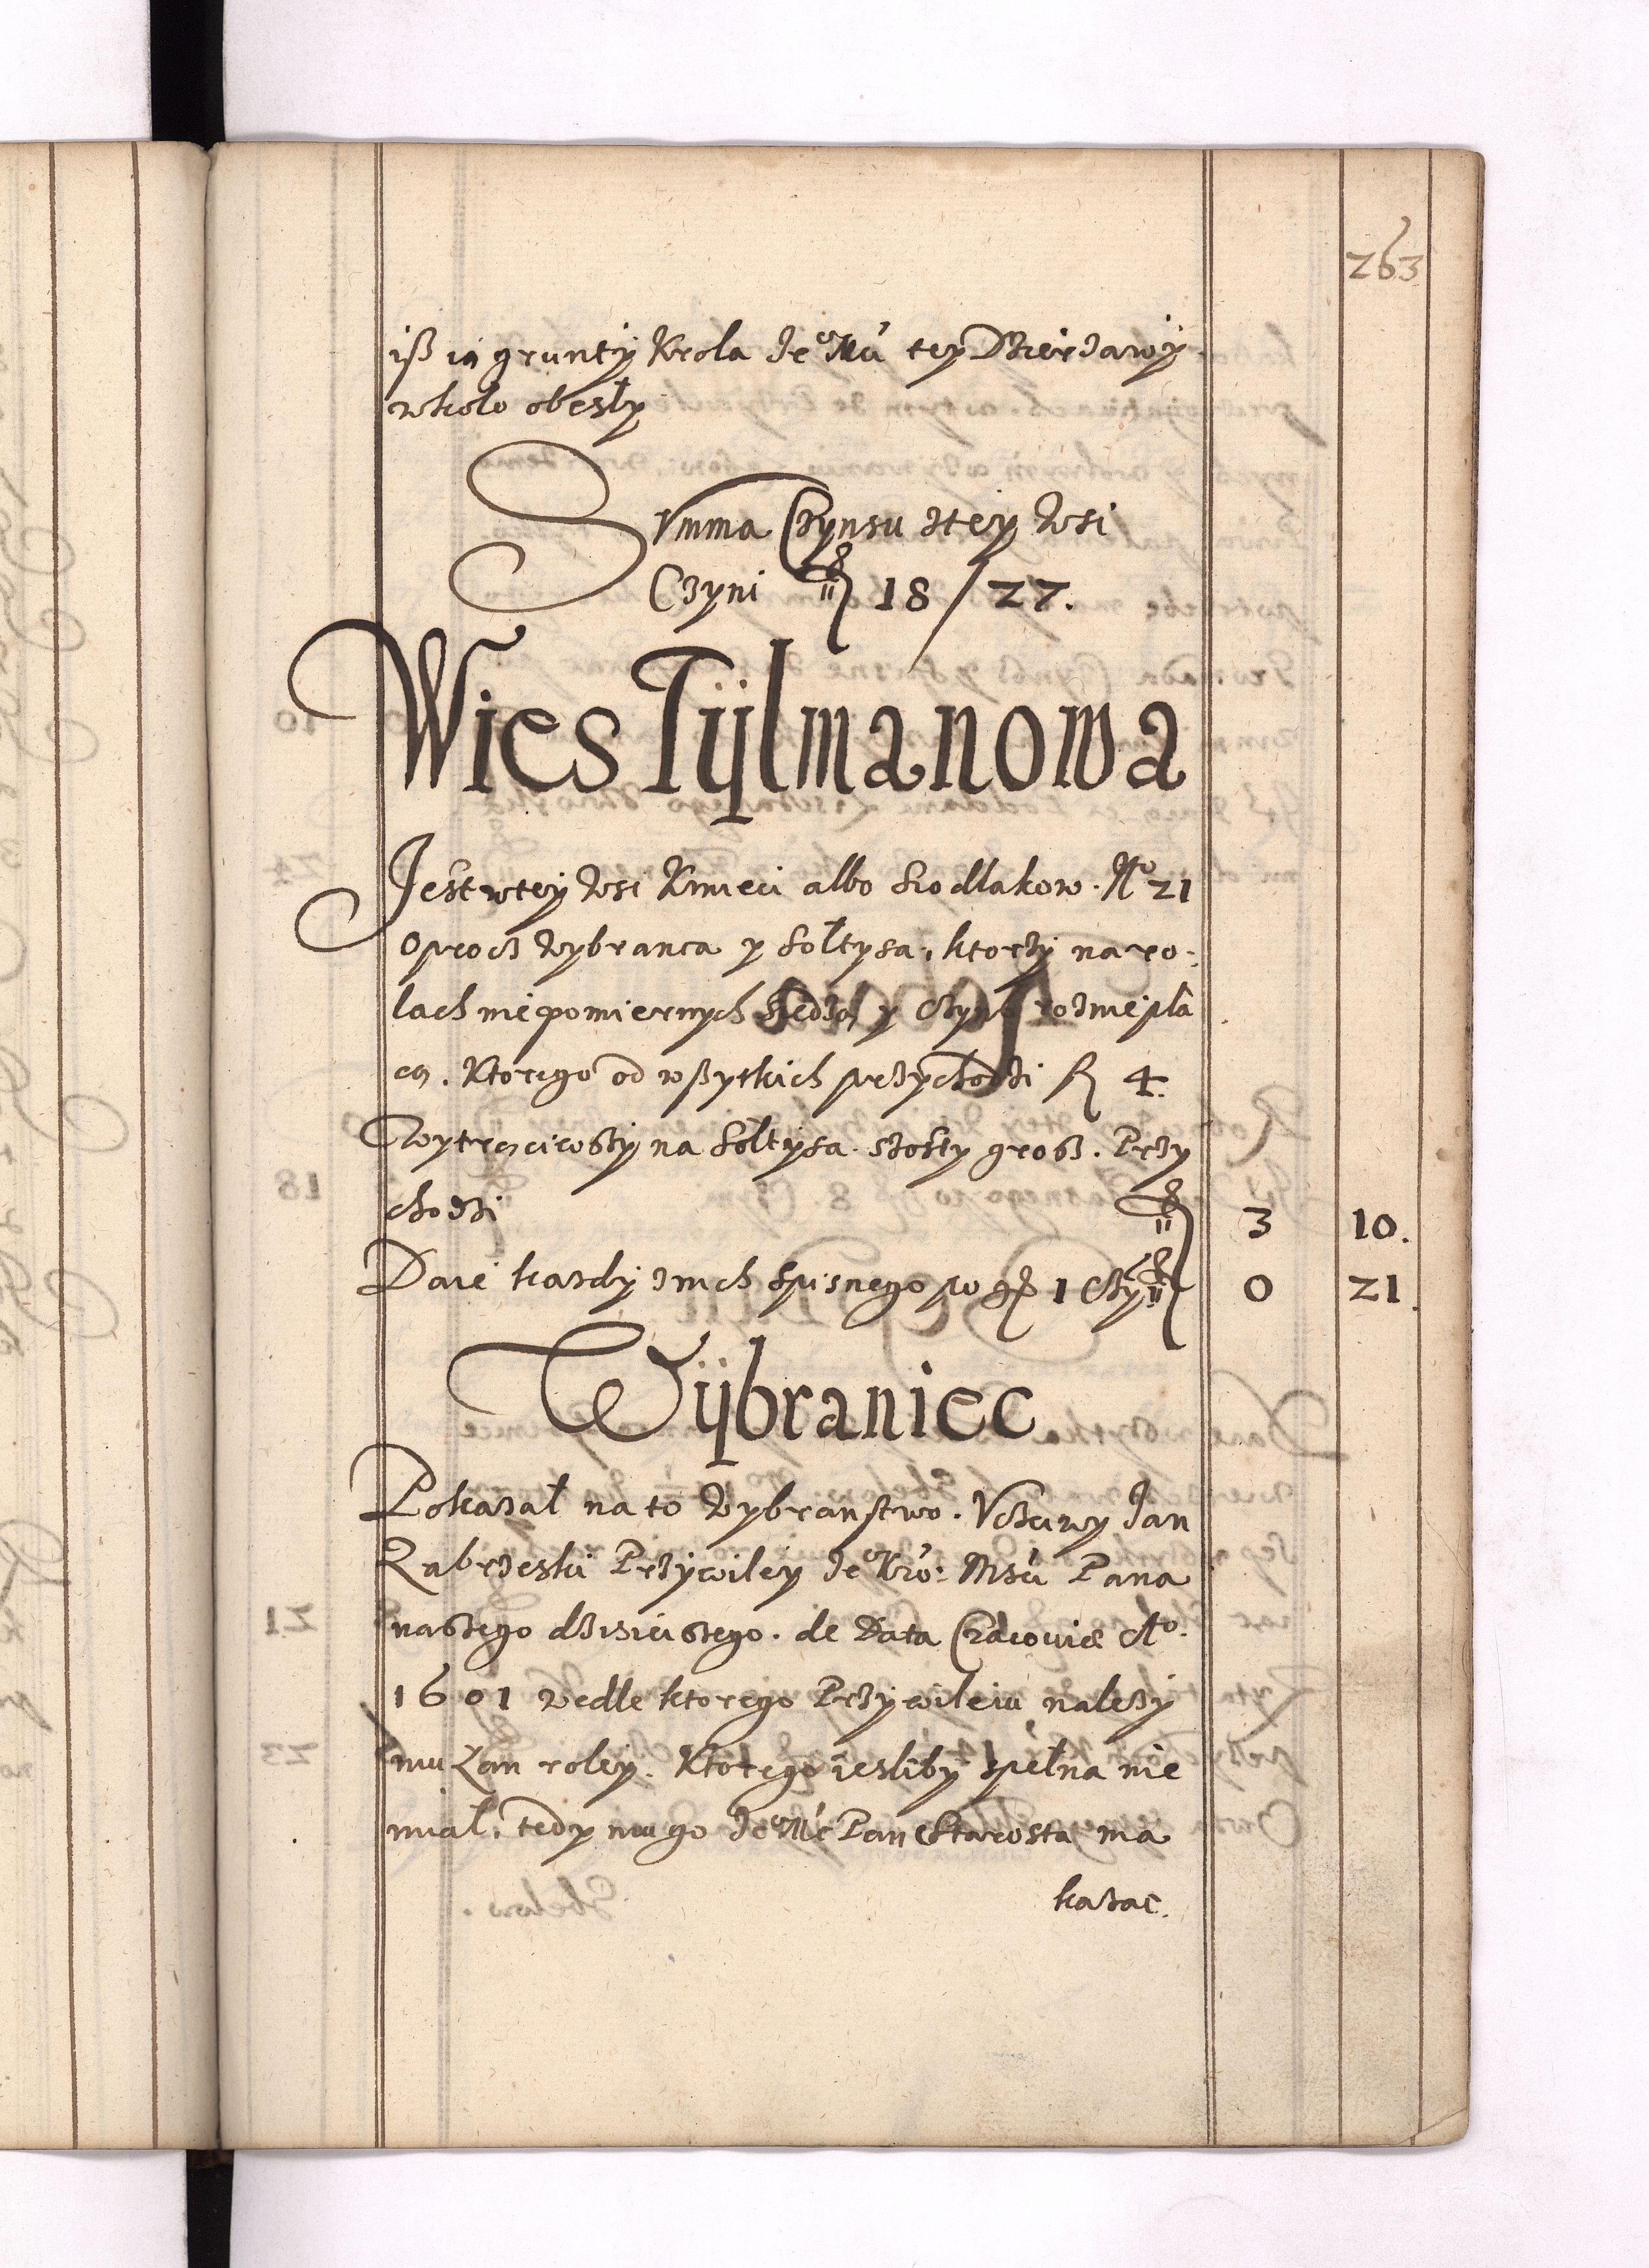 263
isz ią grunty Krola Jeº Mći tey Dzierzawy
wkoło obeszły
Summa Czynszu ztey Wsi
Czyni fl 18/27.
Wies Tÿlmanowa
Jest wtey Wsi Kmieci albo Siodlakow. Nº 21
oprocz Wybranca y Sołtysa, ktorzy na ro-
lach niepomiernych siedzą y Czynsz roznie pła
cą. Ktorego od wszytkich przychodzi fl 4.
Wytrąciwszy na Sołtysa szosty grosz. Przy
chodzi fl 3 10.
Daie kazdy znich Spisnego po gr 1 Czyni fl 0 21.
Wÿbraniec
Pokazał na to Wybranstwo. Vcżciwy Jan
Zabrzeski Przywiley Jeº Kró: Mści Pana
naszego dzisieiszego. de Data Cracouiæ Aº.
1601 wedle ktorego Przywileiu nalezy
mu Łan roley. Ktorego iesliby zpełna nie
miał, tedy mu go Jeº Mć Pan Starosta ma
kazac.